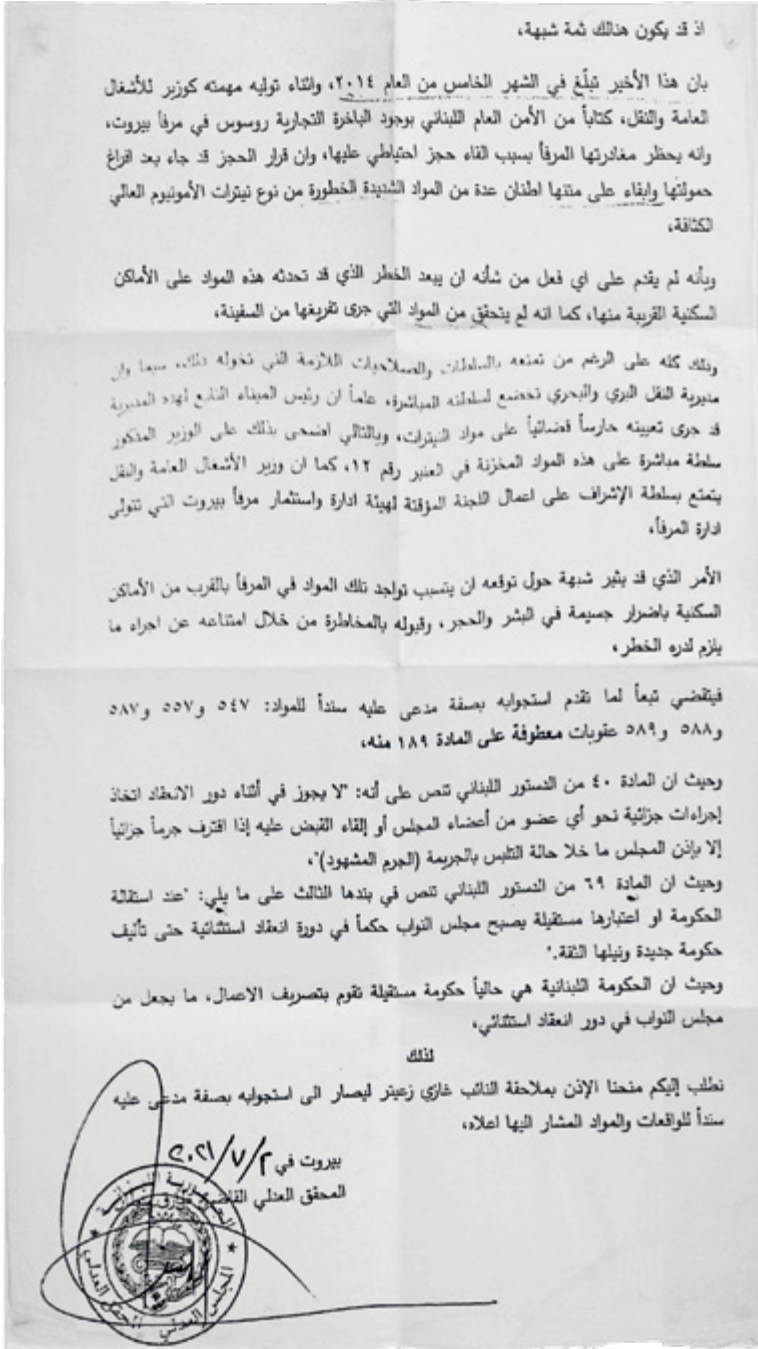 اذ قد يكون هنالك ثمة شبهة،
بان هذا الأخير تبلّغ في الشهر الخامس من العام ٢٠١٤، واثناء توليه مهمته كوزير للأشغال
العامة والنقل، كتاباً من الأمن العام اللبناني بوجود الباخرة التجارية روسوس في مرفأ بيروت،
وانه يحظر مغادرتها المرفأ بسبب القاء حجز احتياطي عليها، وان قرار الحجز قد جاء بعد افراغ
حمولتها وابقاء على متنها اطنان عدة من المواد الشديدة الخطورة من نوع نيترات الأمونيوم العالي
الكثافة،
وبأنه لم يقدم على اي فعل من شأنه ان يبعد الخطر الذي قد تحدثه هذه المواد على الأماكن
السكنية القريبة منها، كما انه لم يتحقق من المواد التي جرى تفريغها من السفينة،
وذلك كله على الرغم من تمتعه بالسلطات والصلاحيات اللازمة التي تخوله ذلك، سيما وان
مديرية النقل البري والبحري تخضع لسلطته المباشرة، علماً ان رئيس الميناء التابع لهذه المديرية
قد جرى تعيينه حارساً قضائياً على مواد النيترات، وبالتالي اضحى بذلك على الوزير المذكور
سلطة مباشرة على هذه المواد المخزنة في العنبر رقم ١٢، كما ان وزير الأشغال العامة والنقل
يتمتع بسلطة الإشراف على اعمال اللجنة المؤقتة لهيئة ادارة واستثمار مرفأ بيروت التي تتولى
ادارة المرفأ،
الأمر الذي قد يثير شبهة حول توقعه ان يتسبب تواجد تلك المواد في المرفأ بالقرب من الأماكن
السكنية باضرار جسيمة في البشر والحجر، وقبوله بالمخاطرة من خلال امتناعه عن اجراء ما
يلزم لدره الخطر،
فيقتضي تبعاً لما تقدم استجوابه بصفة مدعى عليه سنداً للمواد: ٥٤٧ و٥٥٧ و٥٨٧
و٥٨٨ و٥٨٩ عقوبات معطوفة على المادة ١٨٩ منه،
وحيث ان المادة ٤٠ من الدستور اللبناني تنص على أنه: "لا يجوز في أثناء دور الانعقاد اتخاذ
إجراءات جزائية نحو أي عضو من أعضاء المجلس أو إلقاء القبض عليه إذا اقترف جرماً جزائياً
إلا بإذن المجلس ما خلا حالة التلبس بالجريمة (الجرم المشهود)"،
وحيث ان المادة ٦٩ من الدستور اللبناني تنص في بندها الثالث على ما يلي: "عند استقالة
الحكومة او اعتبارها مستقيلة يصبح مجلس النواب حكماً في دورة انعقاد استثنائية حتى تأليف
حكومة جديدة ونيلها الثقة."
وحيث ان الحكومة اللبنانية هي حالياً حكومة مستقيلة تقوم بتصريف الاعمال، ما يجعل من
مجلس النواب في دور انعقاد استثنائي،
لذلك
نطلب إليكم منحنا الإذن بملاحقة النائب غازي زعيتر ليصار الى استجوابه بصفة مدعى عليه
سنداً للواقعات والمواد المشار اليها اعلاه،
بيروت في ٢/٧/٢٠٢١
المحقق العدلي القاضي
الجمهورية اللبنانية
المجلس العدلي
المحقق العدلي